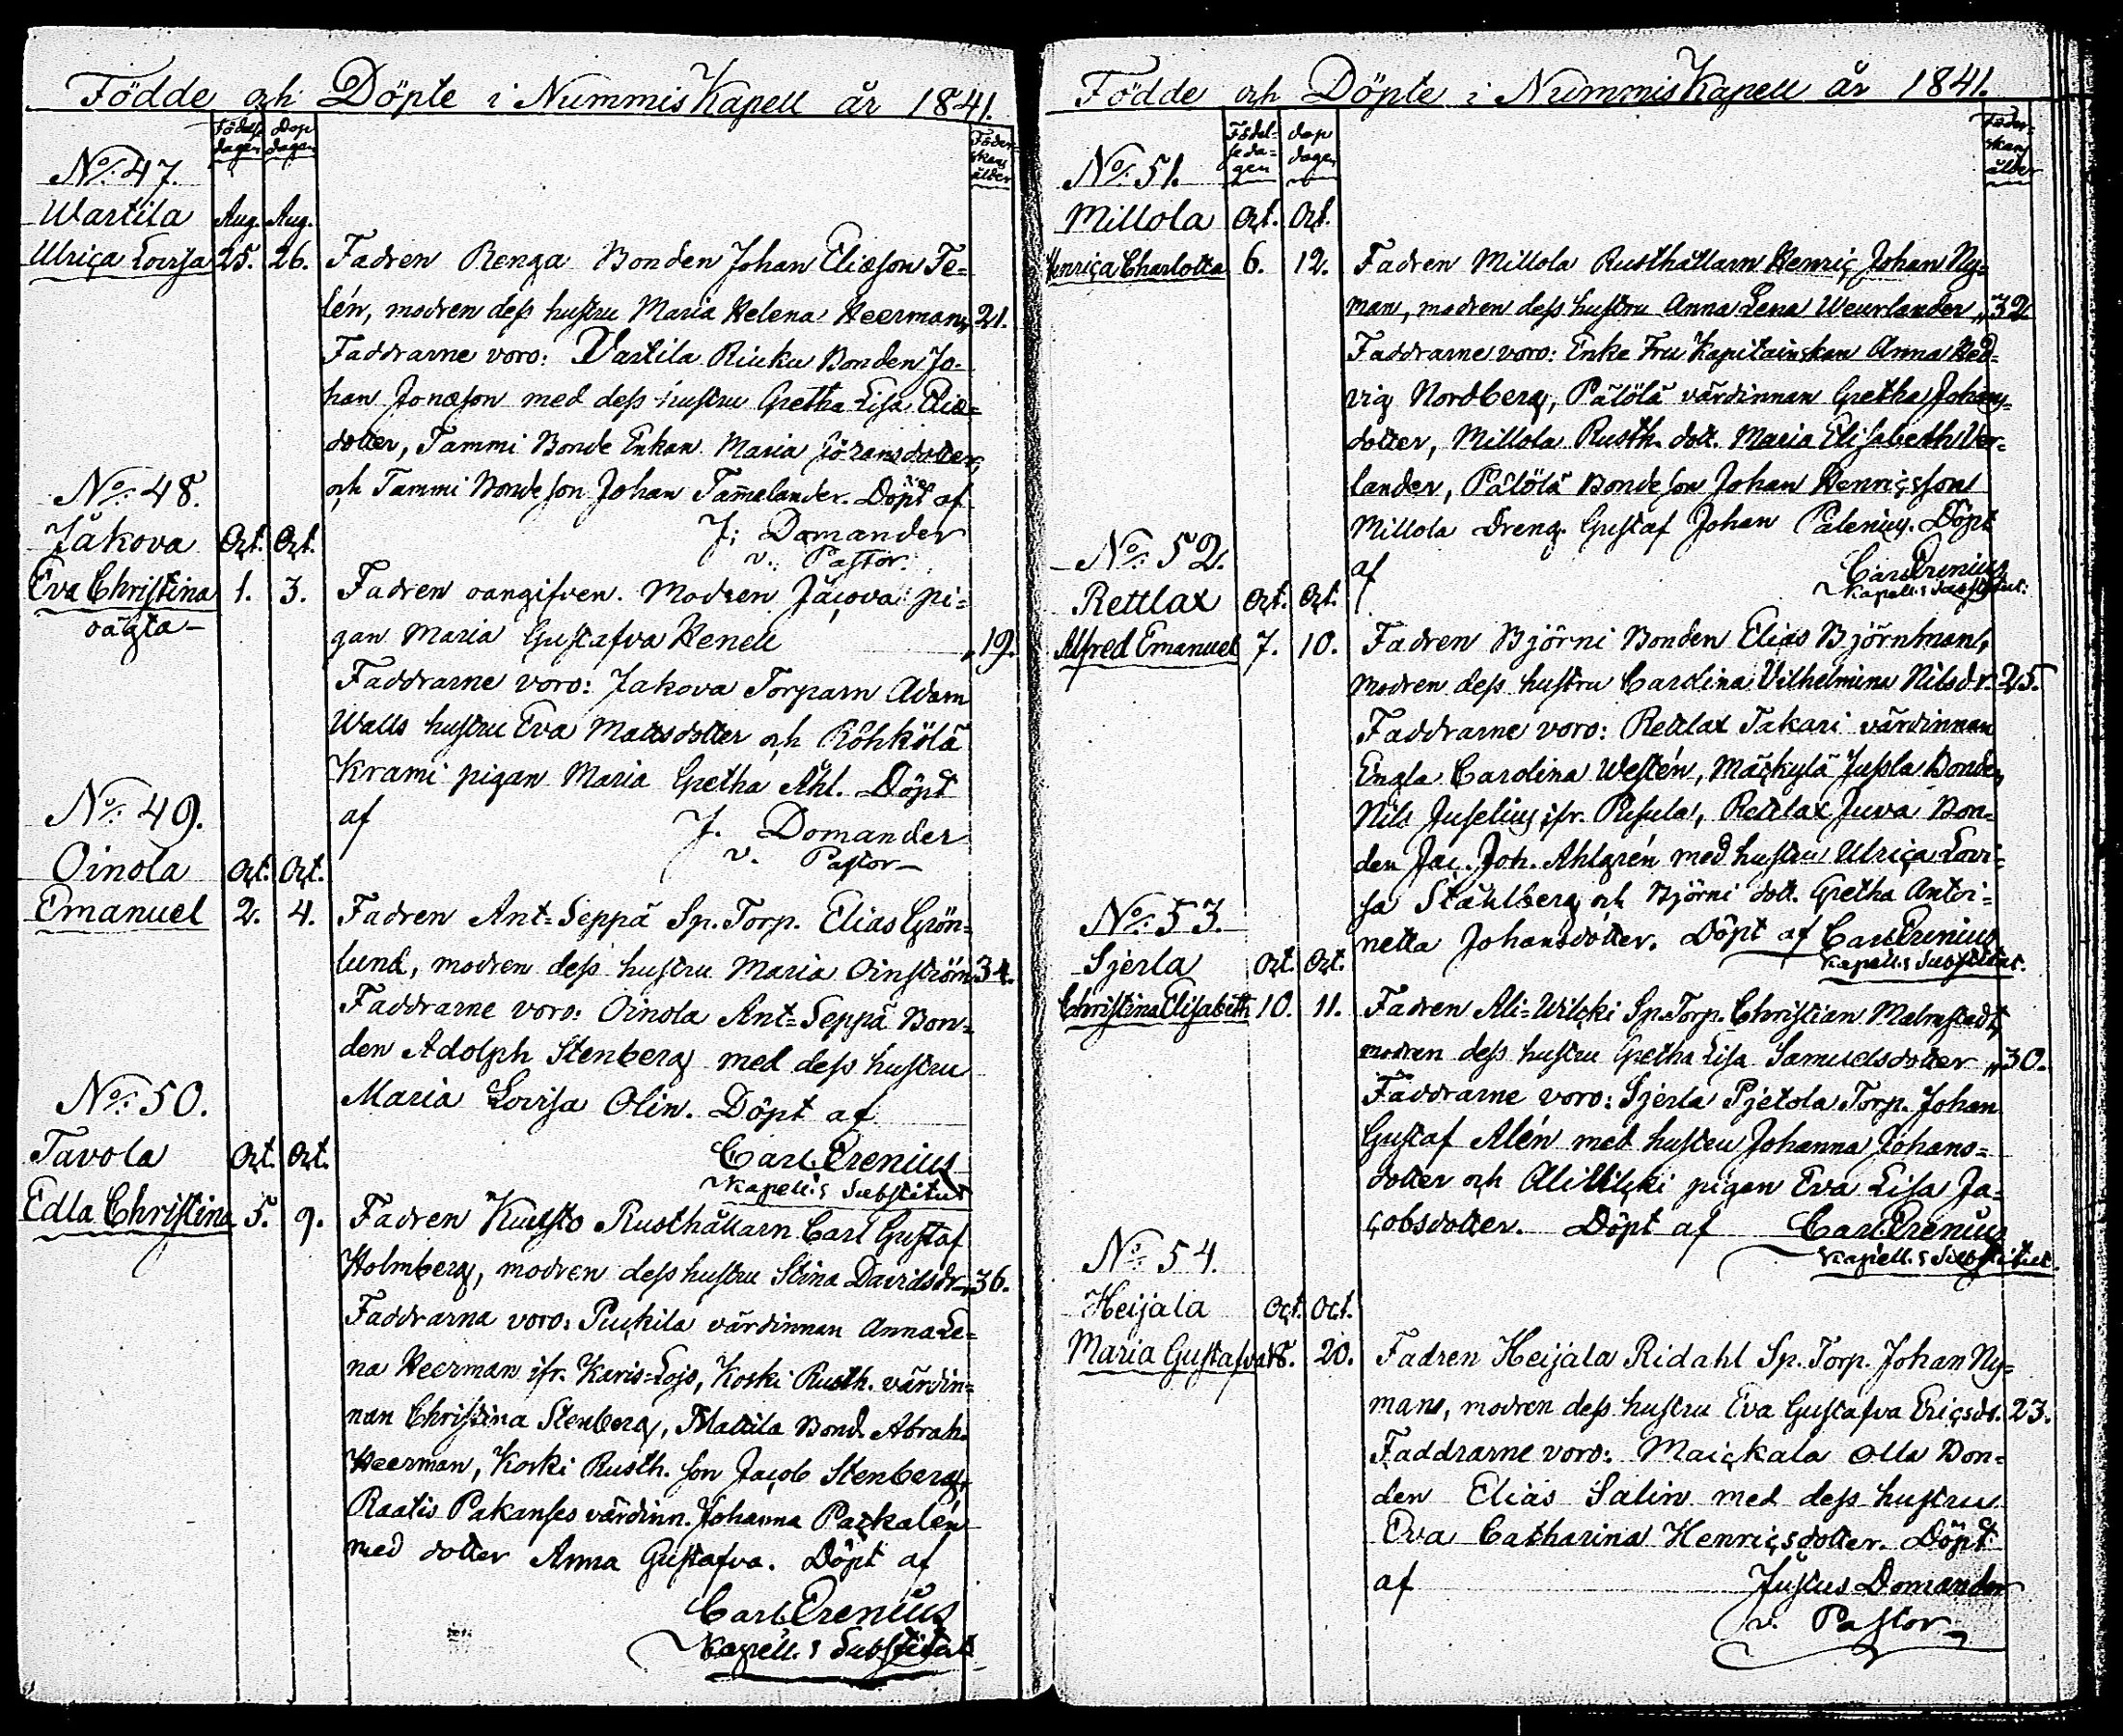 Födde och Döpte i Nummis Kapell år 1841.
Födelse dagen
Dop dagen
Föderskans ålder
No: 47.
Wartila Aug. Aug.
Ulrica Lovisa 25. 26. Fadren Renga Bonden Johan Eliæson Te=
lén, modren dess hustru Maria Helena Heerman, 21.
Faddrarne voro: Vartila Riuku Bonden Jo-
han Jonæson med dess hustru Gretha Lisa Eliæ=
dotter, Tammi Bonde Enkan Maria Göransdotter,
och Tammi Bonde son Johan Tam̄elander. Döpt af
J: Domander
v. Pastor.
No: 48.
Jakova Oct. Oct.
Eva Christina 1. 3. Fadren oangifven. Modren Jacova pi=
oägta
gan Maria Gustafva Henell „19.
Faddrarne voro: Jakova Torparn Adam
Walls hustru Eva Mattsdotter och Röhkölä
Krami pigan Maria Gretha Åhl. Döpt
af J. Domander
v. Pastor
No: 49.
Oinola Oct. Oct.
Emanuel 2. 4. Fadren Ant=Seppä Sp. Torp. Elias Grön=
lund, modren dess hustru Maria Oinström 34.
Faddrarne voro: Oinola Ant=Seppä Bon=
den Adolph Stenberg med dess hustru
Maria Lovisa Olin. Döpt af
Carl Prenius
Kapell:s Substitut
No: 50.
Tavola Oct. Oct.
Edla Christina 5. 9. Fadren Kuusto Rusthållarn Carl Gustaf
Holmberg, modren dess hustru Stina Davidsdr 36.
Faddrarna voro: Puckila värdinnan Anna Le=
na Heerman ifr. Karis=Lojo, Koski Rusth. värdin=
nan Christina Stenberg, Mattila Bond. Abrah.
Heerman, Koski Rusth. son Jacob Stenberg,
Raatis Pakanses värdinn. Johanna Packalén
med dotter Anna Gustafva. Döpt af
Carl Prenius
Kapell:s Substitut
Födde och Döpte i Nummis Kapell år 1841.
Födel=seda=gen
dop dagen
Föderskans ålder
No: 51.
Millola Oct. Oct.
Henrica Charlotta 6. 12. Fadren Millola Rusthållarn Henric Johan Ny=
man, modren dess hustru Anna Lena Weurlander „32
Faddrarne voro: Enke Fru Kapitainskan Anna Hed=
vig Nordberg, Pälölä värdinnan Gretha Johans=
dotter, Millola Rusth. dott. Maria Elisabeth Ver=
lander, Pälölä Bonde son Johan Henricsson
Millola dreng. Gustaf Johan Palenius. Döpt
af Carl Prenius
Kapell:s Substitut.
No: 52.
Rettlax Oct. Oct.
Alfred Emanuel 7. 10. Fadren Björni Bonden Elias Björnman,
modren dess hustru Carolina Vilhelmina Nilsdr. 25.
Faddrarne voro: Rettlax Takari värdinnan
Engla Carolina Westén, Mäckylä Jusla Bonden
Nils Juselius ifr. Pusula, Rettlax Juva Bon=
den Jac. Joh. Ahlgrén med hustru Ulrica Lovi=
sa Ståhlberg och Björni dott. Gretha Antoi=
netta Johansdotter. Döpt af Carl Prenius
Kapell:s Substitut.
No: 53.
Sjerla Oct. Oct.
Christina Elisabeth 10. 11. Fadren Ali=Wilcki Sp. Torp. Christian Malmstedt,
modren dess hustru Gretha Lisa Samuelsdotter „30.
Faddrarne voro: Sjerla Pjetola Torp. Johan
Gustaf Alén med hustru Johanna Johans=
dotter och Ali Wilcki pigan Eva Lisa Ja=
cobsdotter. Döpt af Carl Prenius
Kapell:s Substitut.
No: 54.
Heijala Oct. Oct.
Maria Gustafva 18. 20. Fadren Heijala Ridahl Sp. Torp. Johan Ny=
man, modren dess hustru Eva Gustafva Ericsdr. 23.
Faddrarne voro: Maickala Olla Bon=
den Elias Salin med dess hustru
Eva Catharina Henricsdotter. Döpt
af Justus Domander
v. Pastor